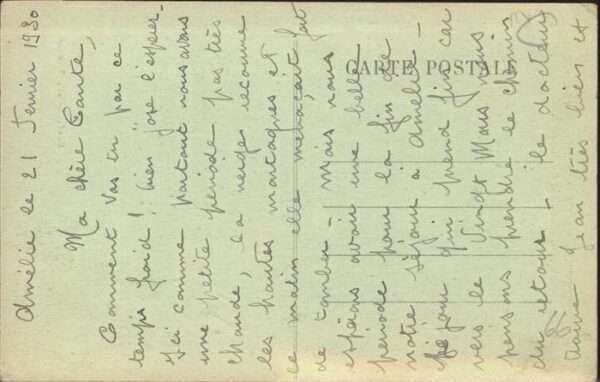 Amélie le 21 Fevrier 1930
Ma chère Tante,
Comment vas tu par ce
temps froid! bien j'ose l'espérer
Ici comme partout nous avons
une petite période pas très
chaude, la neige recouvre
les hautes montagnes et
ce matin elle menaçait fort
de tomber mais nous
espérons avoir une belle
période pour la fin de
notre séjour à Amélie -
séjour qui prend fin car
vers le Vingt Mars nous
pensons prendre le chemin
du retour - le docteur
trouve Jean très bien et
CARTE POSTALE